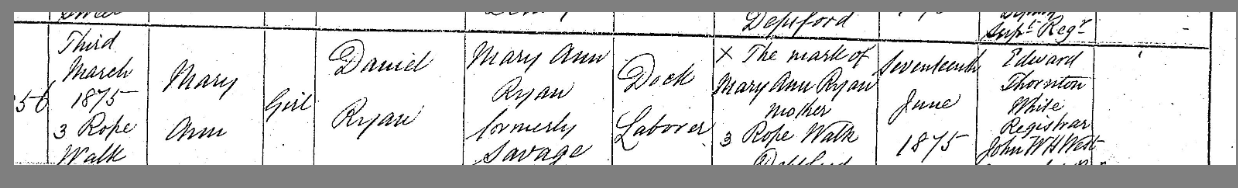 Deptford
Supt Regr
256
Third
March
1875
3 Rope
Walk
Mary
Ann
Girl
Daniel
Ryan
Mary Ann
Ryan
formerly
Savage
Dock
Laborer
X The mark of
Mary Ann Ryan
Mother
3 Rope Walk
Deptford
Seventeenth
June
1875
Edward
Thornton
White
Registrar
John W H West